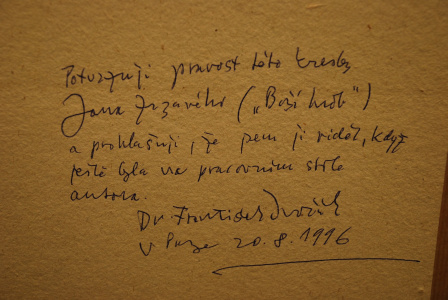 Potvrzuji pravost této kresby
Jana Zrzavého („Boží hrob")
a prohlašuji, že jsem ji viděl, když
ještě byla na pracovním stole
autora.
Dr. František Dvořák
V Praze 20.8.1996